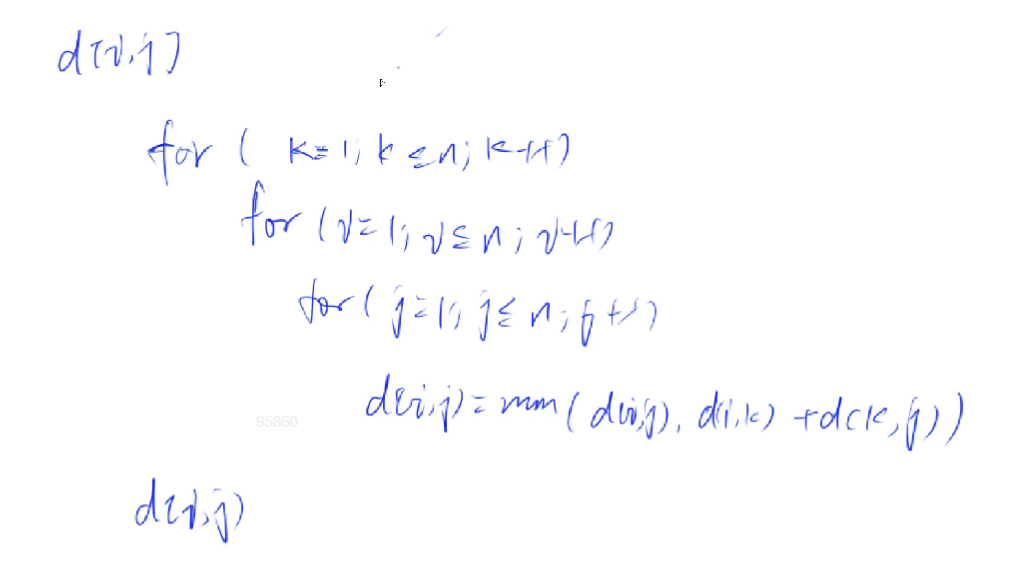 d[i,j]
for ( k=1; k≤n; k++)
for (i=1; i≤n; i++)
for ( j=1; j≤n; j++)
d(i,j)=min( d(i,j), d(i,k) +d(k,j))
95860
d[i,j)